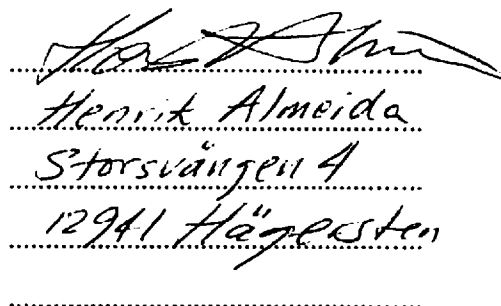 Henrik Almeida
Storsvängen 4
12941 Hägersten